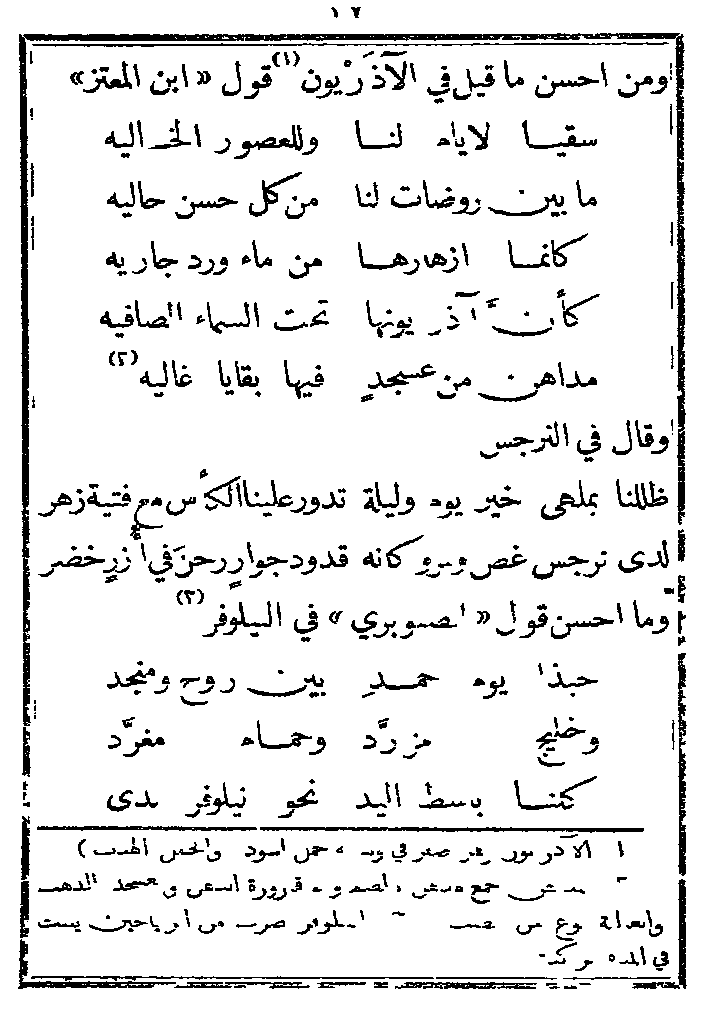 ١٢
ومن احسن ما قيل في الآذَرْيون(١) قول « ابن المعتز »
سقيا لايام لنا وللعصور الخاليه
ما بين روضات لنا من كل حسن حاليه
كانما ازهارها من ماء ورد جاريه
كأنَّ آذريونها تحت السماء الصافيه
مداهن من عسجدٍ فيها بقايا غاليه(٢)
وقال في النرجس
ظللنا بملهى خير يوم وليلة تدور علينا الكأس مع فتية زهر
لدى نرجس غض وسرو كانه قدود جوارٍ رحنَ في أُزرٍ خضر
وما احسن قول « الصنوبري » في النيلوفر(٣)
حبذا يوم حمدِ بين روح ومنجد
وخليج مزرَّد وحمام مغرَّد
كلنا باسط اليد نحو نيلوفر ندى
١ الآذريون زهر اصفر في وسطه خمل اسود
جمع قارورة
نوع من النيلوفر ضرب من الرياحين ينبت
في المياه